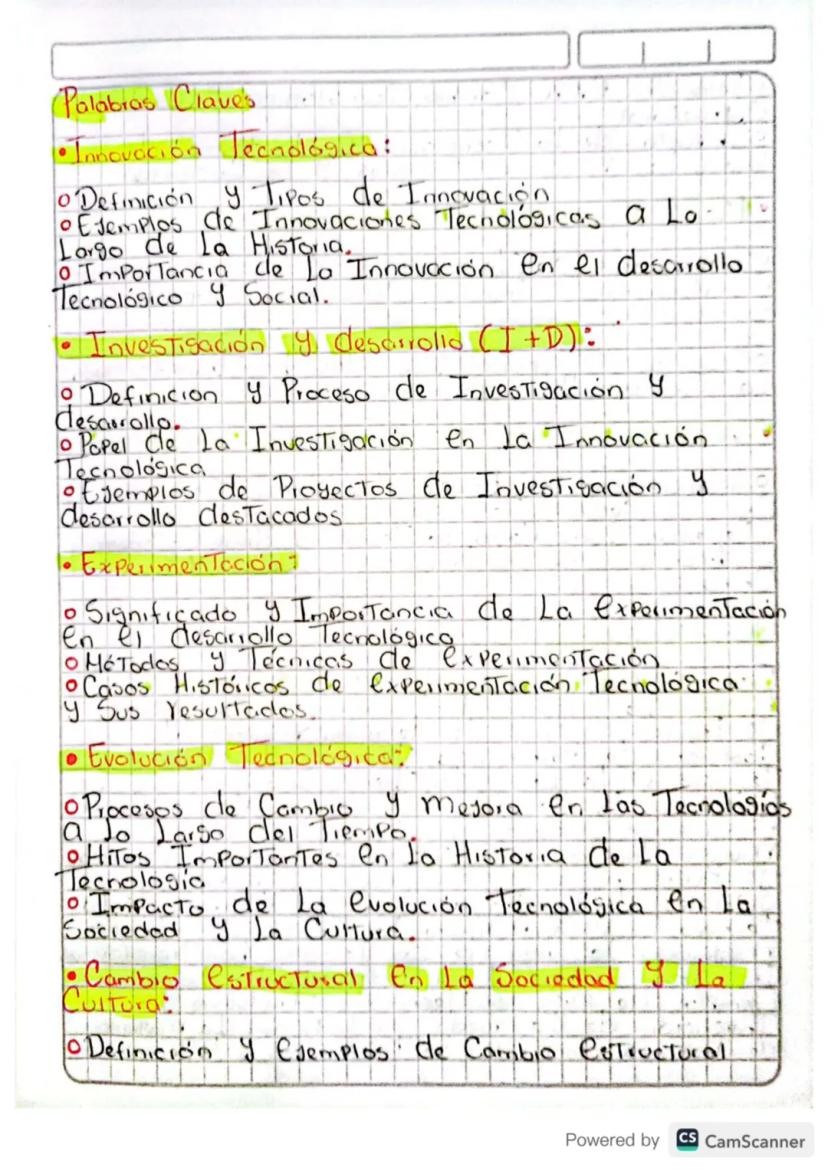 Palabras Claves
• Innovación Tecnológica:
o Definición y Tipos de Innovación
o Ejemplos de Innovaciones Tecnológicas a Lo
Largo de La Historia.
o Importancia de La Innovación en el desarrollo
Tecnológico y Social.
• Investigación y desarrollo (I+D):
o Definicion y Proceso de Investigación y
desarrollo.
o Papel de La Investigación en La Innovación
Tecnológica
o Ejemplos de Proyectos de Investigación y
desarrollo destacados
• Experimentación:
o Significado y Importancia de La experimentación
en el desarrollo Tecnológico
o Métodos y Técnicas de experimentación
o Casos Históricos de experimentación Tecnológica
y Sus resultados.
• Evolución Tecnológica:
o Procesos de Cambio y mejora en las Tecnologías
a lo Largo del Tiempo.
o Hitos Importantes en la Historia de La
Tecnología
o Impacto de La evolución Tecnológica en La
Sociedad y La Cultura.
• Cambio estructural en La Sociedad y La
Cultura:
o Definición y ejemplos de Cambio estructural
Powered by CS CamScanner